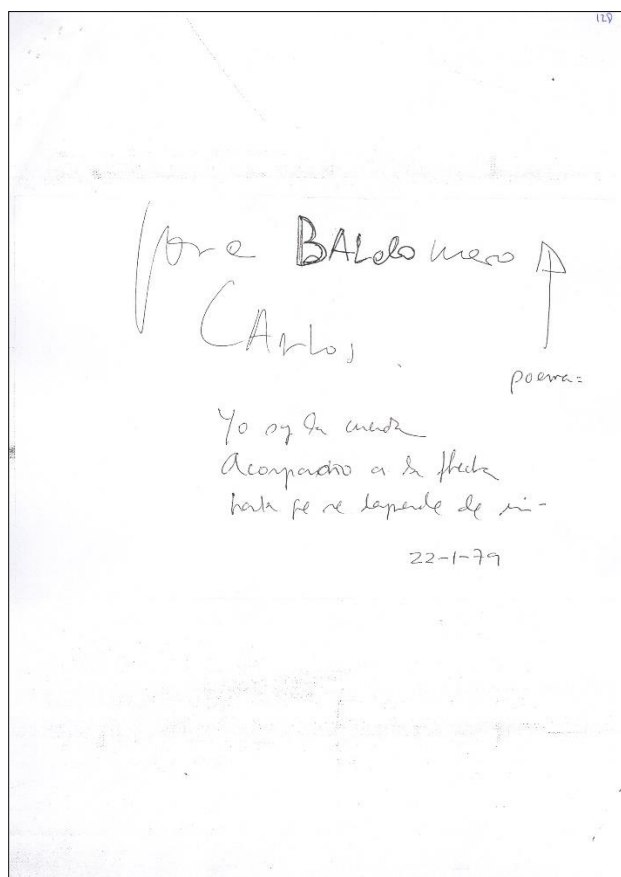 128
para BALdomero
CArlos.
poema=
Yo soy la cuerda
Acompaño a la flecha
hasta qe se desprende de mi-
22-1-79